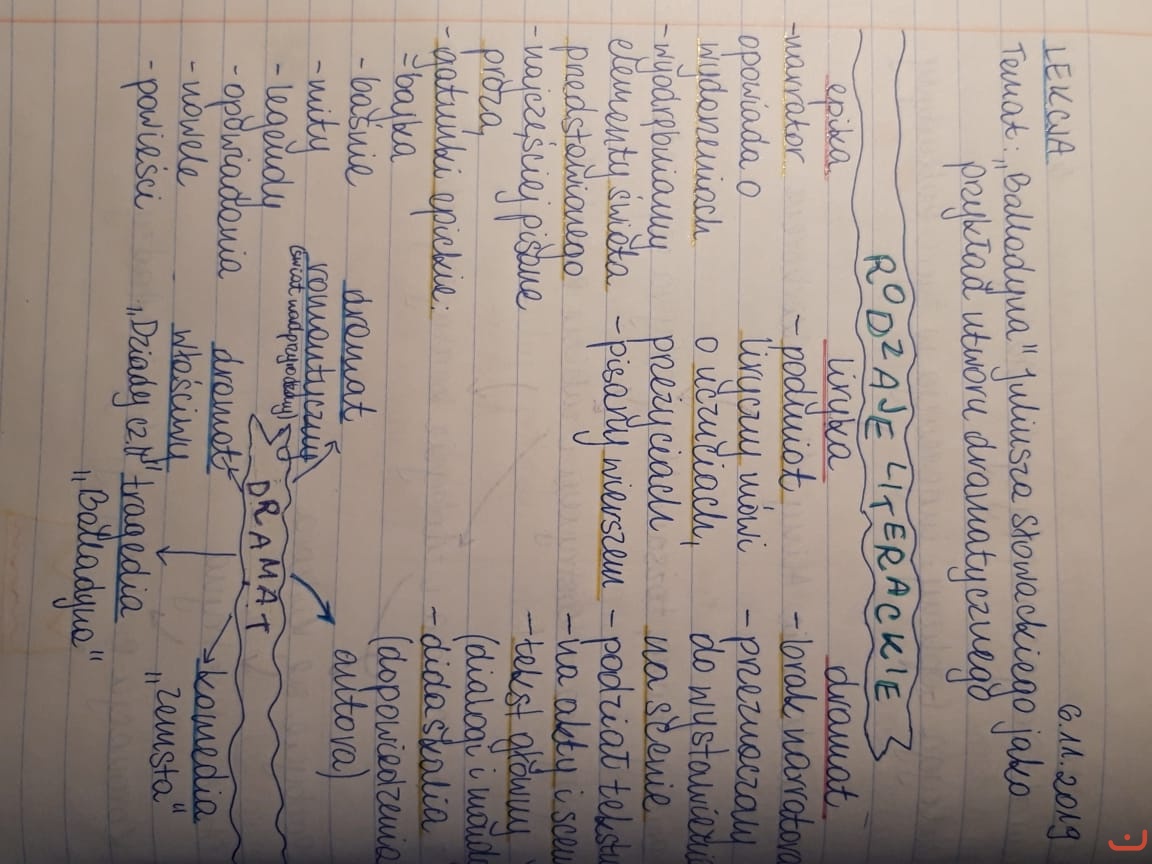 LEKCJA
6.11.2019
Temat: „Balladyna" Juliusza Słowackiego jako
przykład utworu dramatycznego
RODZAJE LITERACKIE
epika
-narrator
opowiada o
wydarzeniach
-wyodrębniamy
elementy świata
przedstawionego
-najczęściej pisane
prozą
-gatunki epickie:
-bajka
-baśnie
-mity
-legendy
-opowiadania
-nowele
-powieści
liryka
-podmiot
liryczny mówi
o uczuciach,
przeżyciach
-pisany wierszem
dramat
-brak narratora
-przeznaczany
do wystawienia
na scenie
-podział tekstu
-na akty i sceny
-tekst główny
(dialogi i
-didaskalia
(dopowiedzenia
autora)
DRAMAT
dramat
romantyczny
(świat nadprzyrodzony)
dramat
właściwy
„Dziady cz. II"
tragedia
„Balladyna"
komedia
„Zemsta"